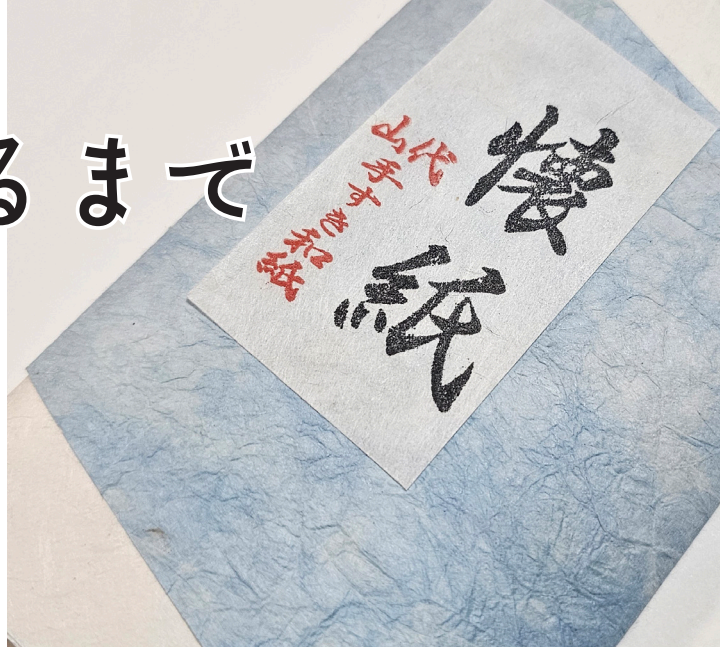 るまで
懐紙
山代
手すき和紙